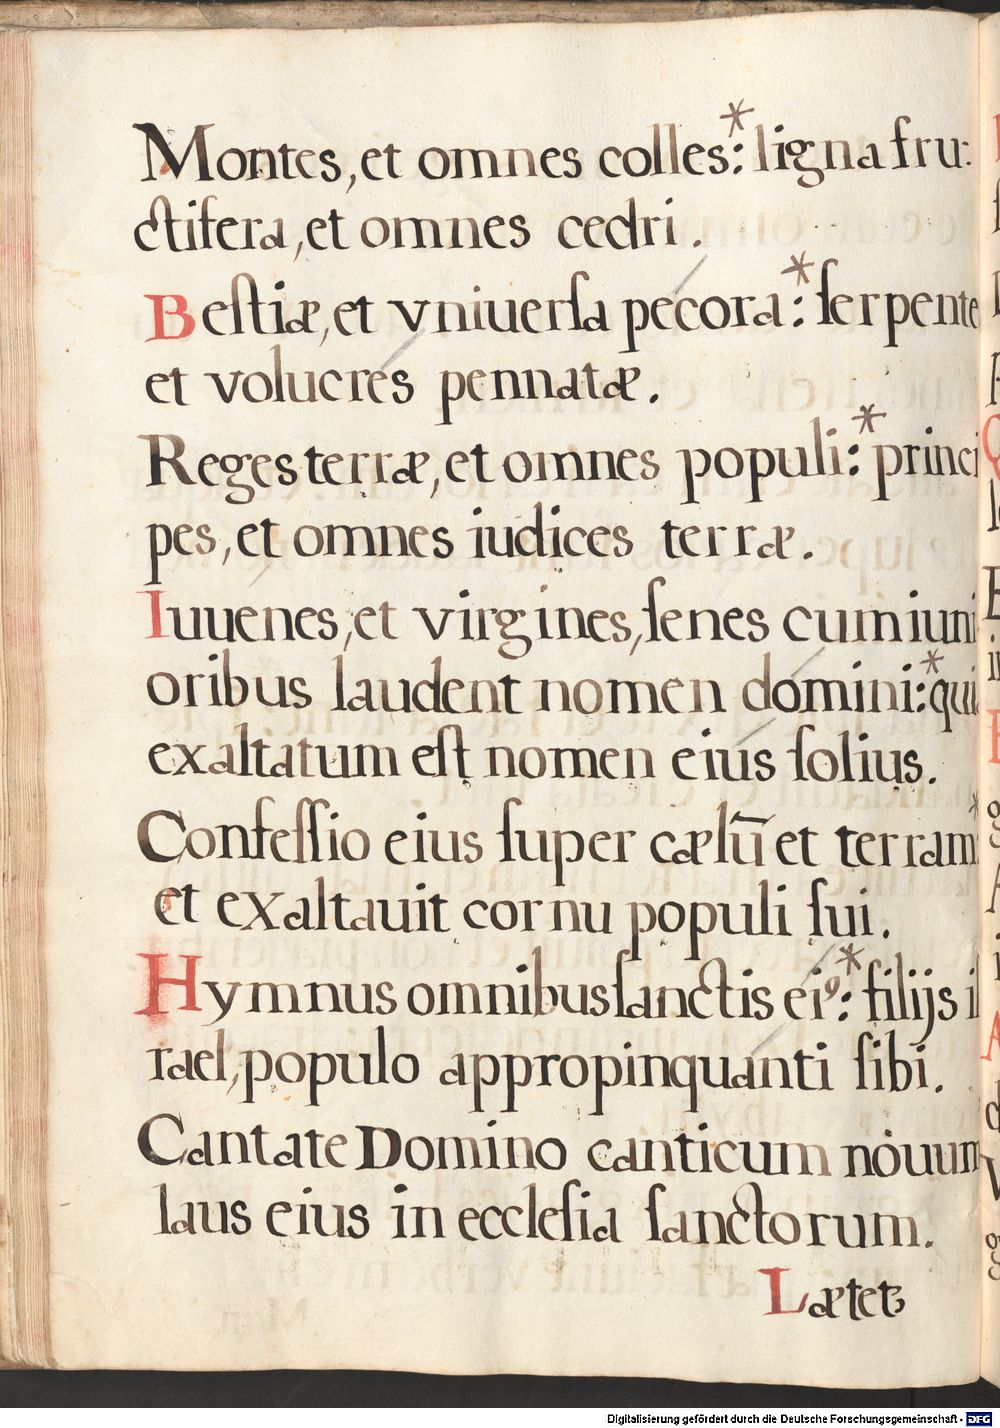 Montes, et omnes colles:* ligna fru:
ctifera, et omnes cedri.
Beſtiæ, et vniuerſa pecora:* ſerpente
et volucres pennatæ.
Reges terræ, et omnes populi:* princi
pes, et omnes iudices terræ.
Iuuenes, et virgines, ſenes cum iuni
oribus laudent nomen domini:* qui
exaltatum eſt nomen eius ſolius.
Confeſſio eius ſuper cælū et terram*
et exaltauit cornu populi ſui.
Hymnus omnibus ſanctis eiꝰ:* filijs iſ
rael, populo appropinquanti ſibi.
Cantate Domino canticum nouum
laus eius in eccleſia ſanctorum.
Lætet
Digitalisierung gefördert durch die Deutsche Forschungsgemeinschaft - DFG